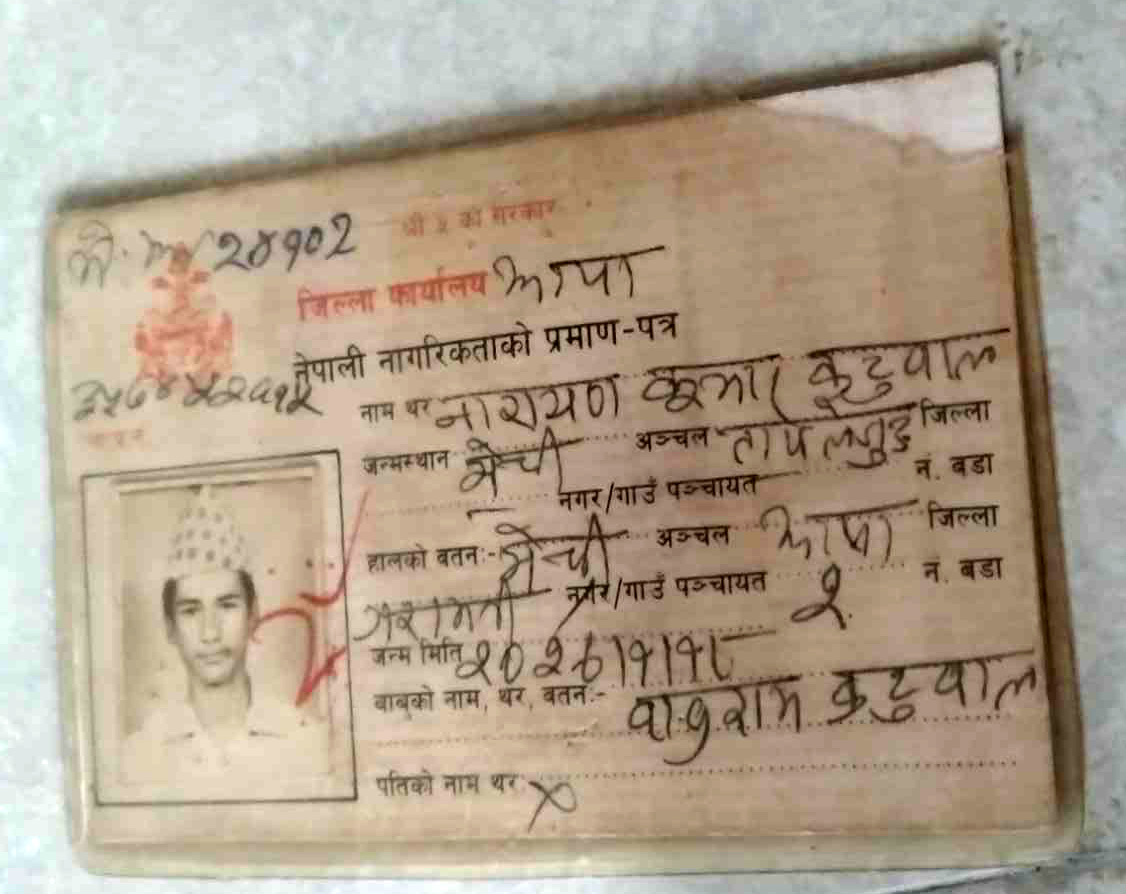 श्री ५ को सरकार
२४१०२
जिल्ला कार्यालय झापा
नेपाली नागरिकताको प्रमाण-पत्र
नाम थर नारायण कुमार कुटुवाल
जन्मस्थान मेची अञ्चल ताप्लेजुङ जिल्ला
नगर/गाउँ पञ्चायत नं. वडा
हालको वतन:- मेची अञ्चल झापा जिल्ला
नगर/गाउँ पञ्चायत २ नं. वडा
जन्म मिति
बाबुको नाम, थर, वतन:- कुटुवाल
पतिको नाम थर ×